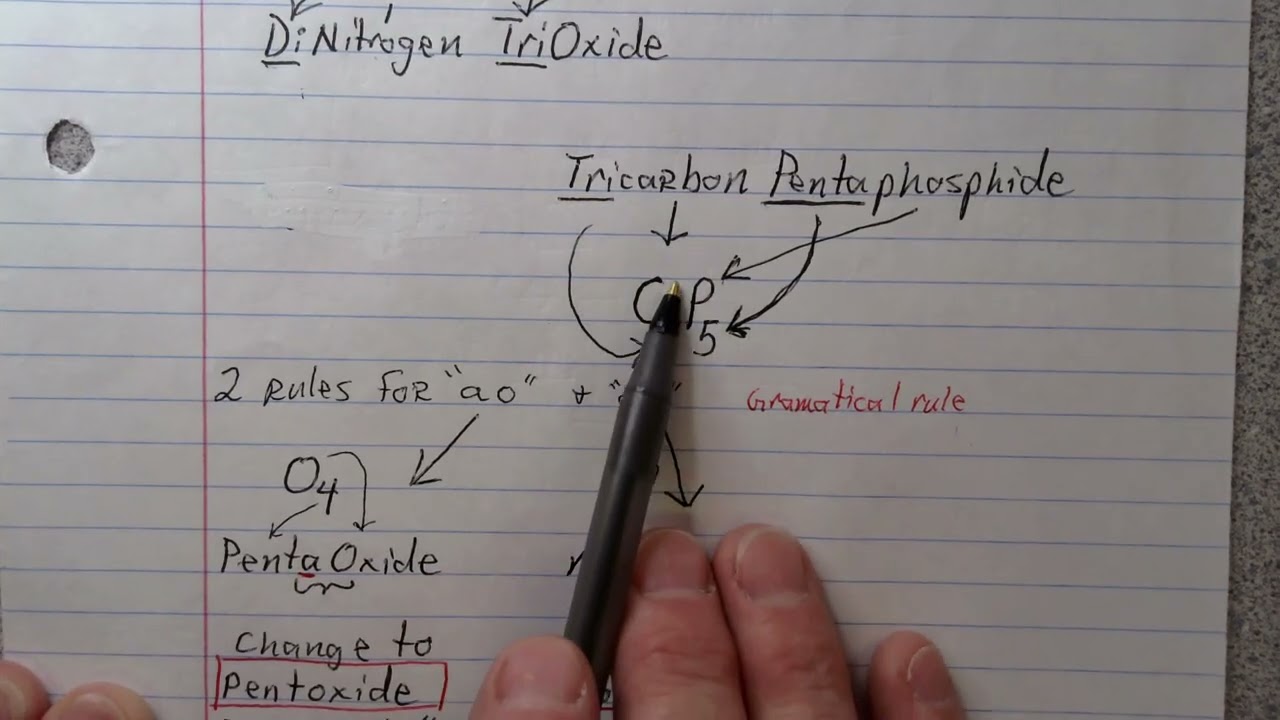 DiNitrogen TriOxide
Tricarbon Pentaphosphide
C P5
2 Rules for "ao" + "
Gramatical rule
O4
PentaOxide
Change to
Pentoxide